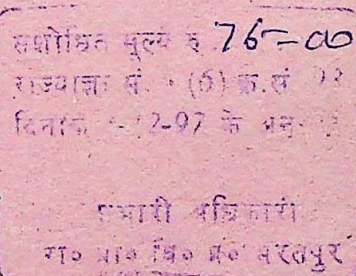 संशोधित मूल्य रु 75=00
राज्याज्ञा सं (6) क्र.सं
दिनांक -12-97 के अनु
प्रभारी अधिकारी
रा० प्रा० वि० प्र० भरतपुर